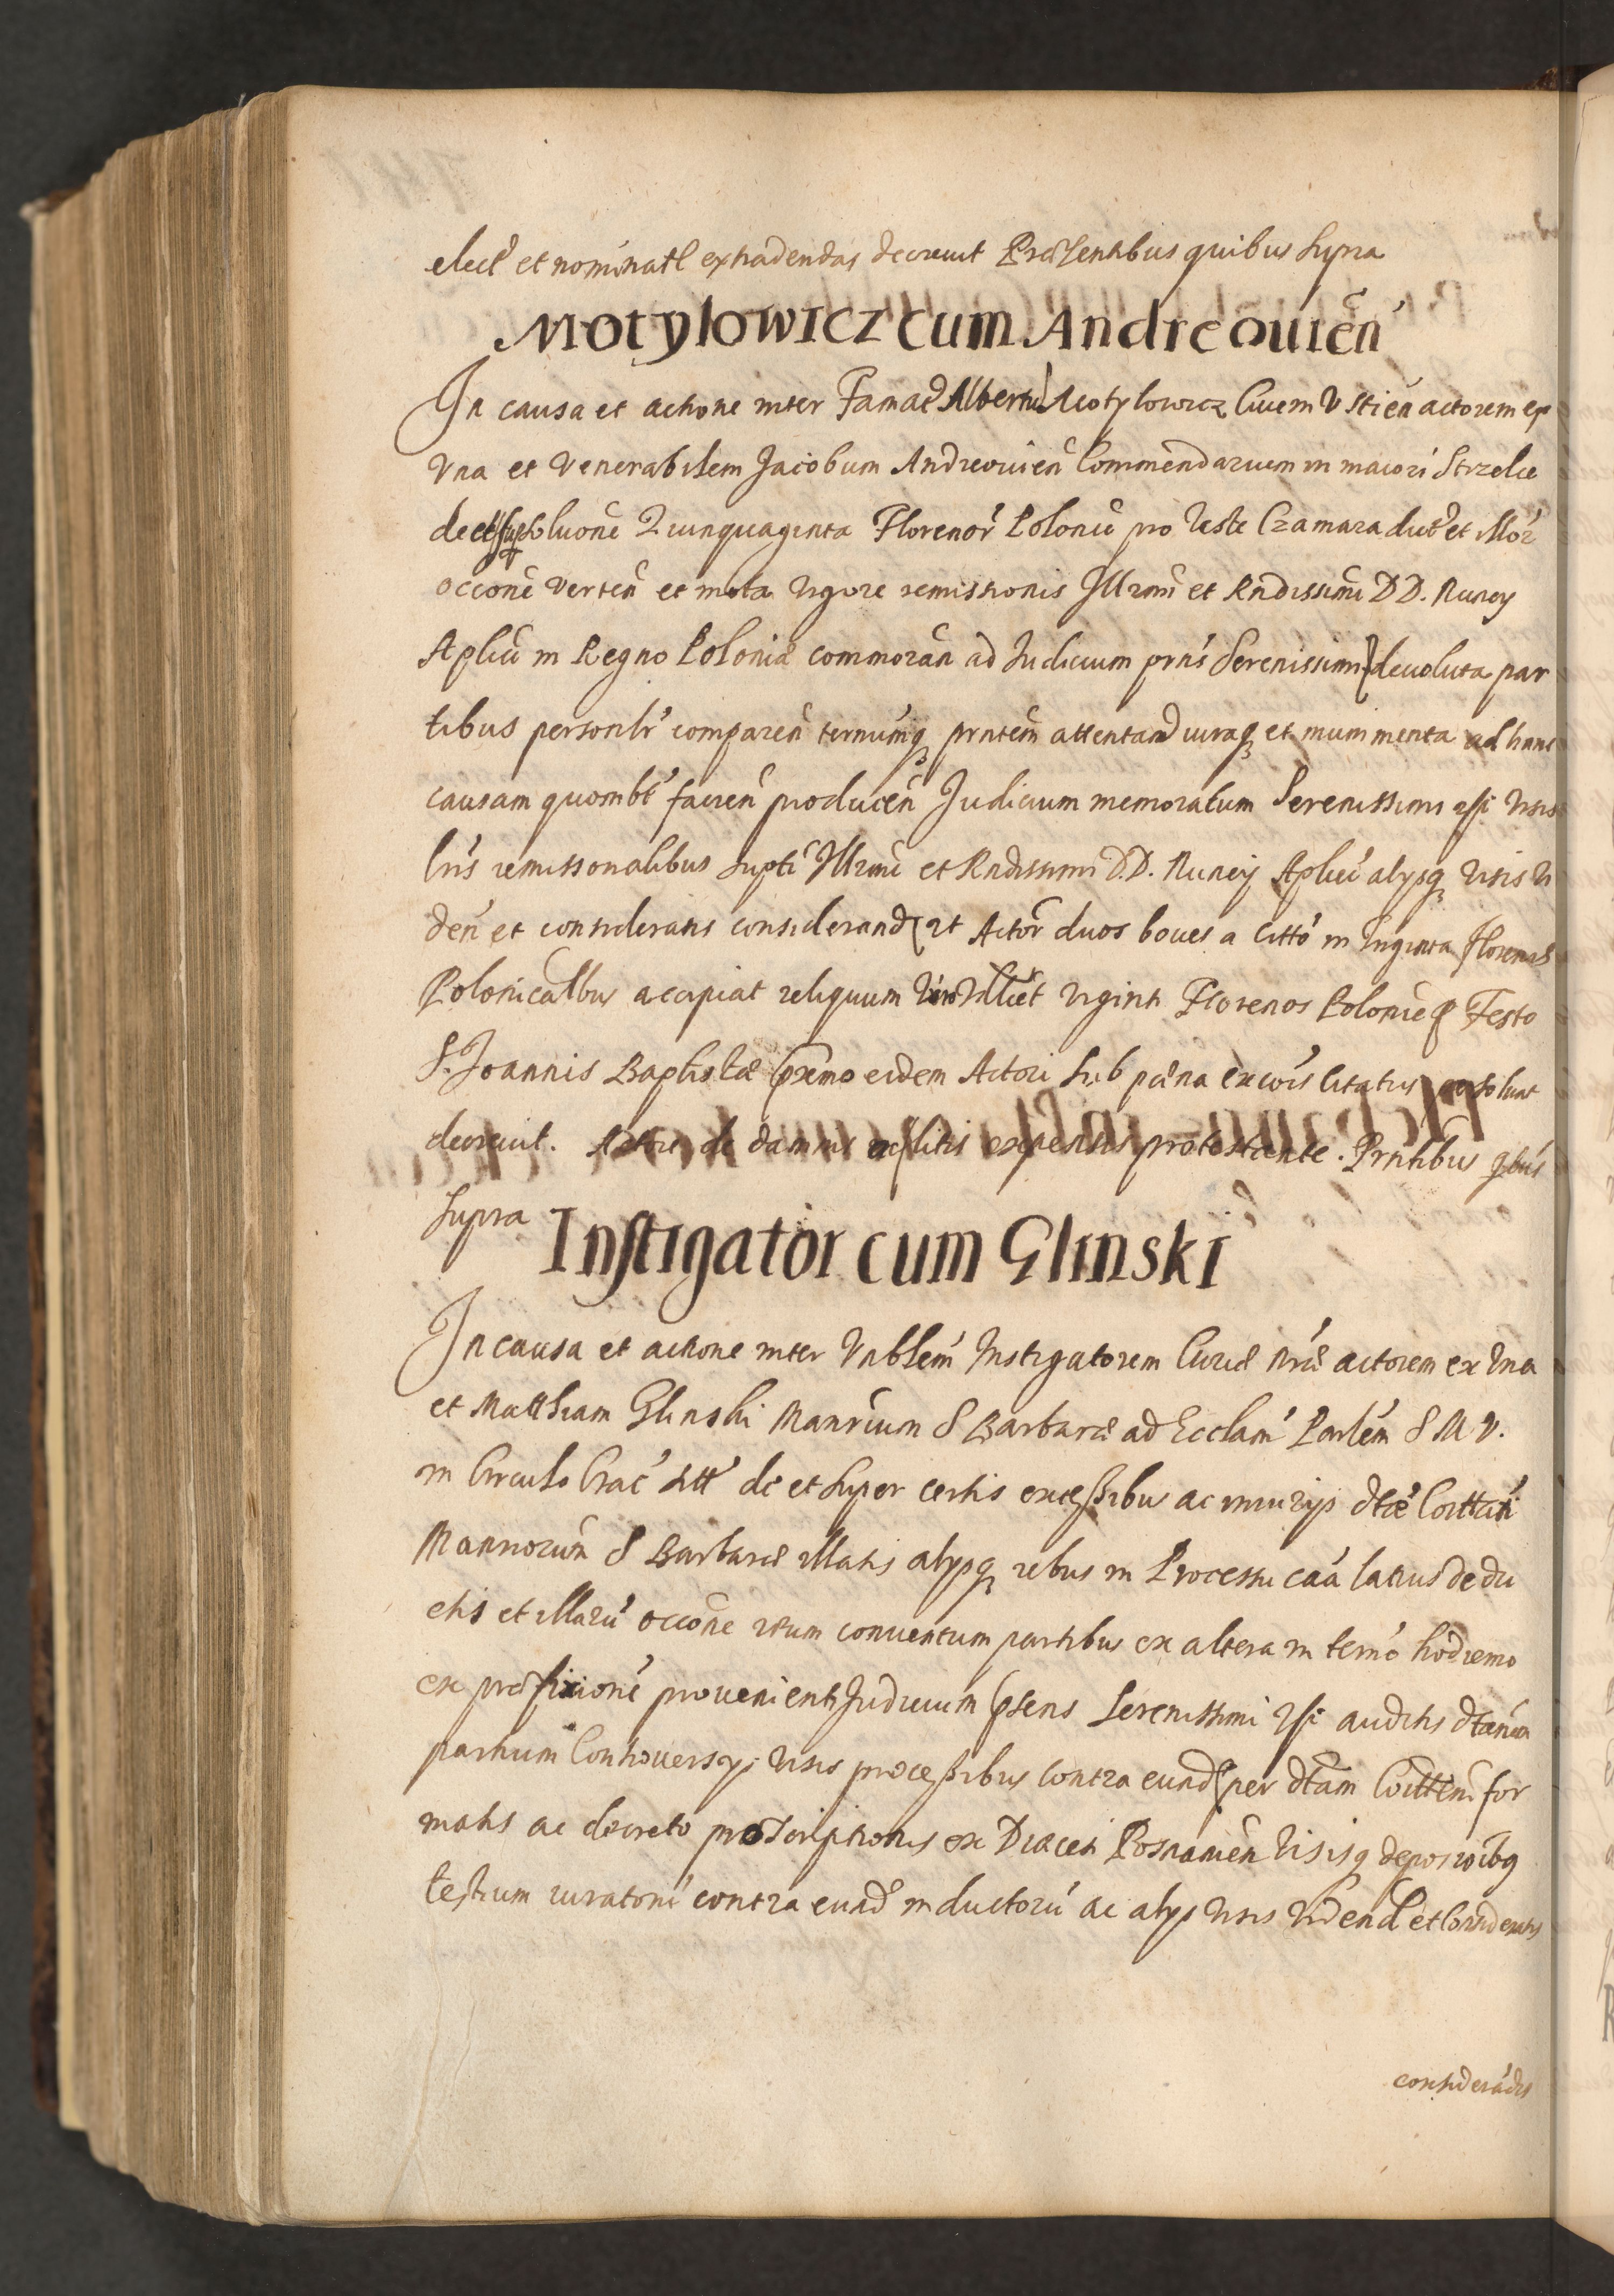 elect et nominatl extradendas decrevit Præsentibus quibus supra
Motylowicz cum Andreouień
In causa et actione inter Famat Albertu Motylowicz Civem Ustien actorem ex
Vna et Venerabilem Jacobum Andreouień Commendarium in maiori Strzelce
de et sup solutione Quinquaginta Florenor Polonic pro Veste Czamara dict et illor
occone verteń et mota vigore remissionis Illrmi et Rndissimi DD. Nuncy
Aplici in Regno Poloniæ commorań ad Iudicium prns Serenissimi devoluta par
tibus personlr compareń ternumq prntem attentand iuraq et munimenta ad hanc
causam quombt facień producen Judicium memoratum Serenissimi rsi visis
lris remissonalibus supti Illrmi et Rndissimi D.D. Nuncij Aplici alysq visis vi
deń et consideratis considerand ut Actor duos boues a Citto in triginta florenis
Polonicalbus accipiat reliquum viginti Florenos Polonic Festo
S. Joannis Baptistæ pxmo eidem Actori sub pæna excois citatus persoluat
decreuit. Actore de damnis ac litis expensis protestante. Prntibus qbus
supra
Instigator cum Glinski
In causa et actione inter Vnblem Instigatorem Curiæ nræ actorem ex Vna
et Matthiam Glinski Manrium S Barbaræ ad Ecclam Parlem S M V.
in Circulo Crac sitt de et super certis excessibus ac iniurijs dtæ Coittati
Manriorum S Barbaræ illatis alysq rebus in Processu caa latius dedu
ctis et illaru occone citum conuentum partibus ex altera in terno hodierno
ex præfixione prouenient Iudicium psens Serenissimi rsi auditis dtarum
partium Controuersys visis processibus contra eund per dtam Coittem for
matis ac decreto proscriptionis ex Diæcesi Posnanień visisq deposiocibq
testium iuratoru contra eund inductoru ac alys visis vidend et Consideratis
considerádis